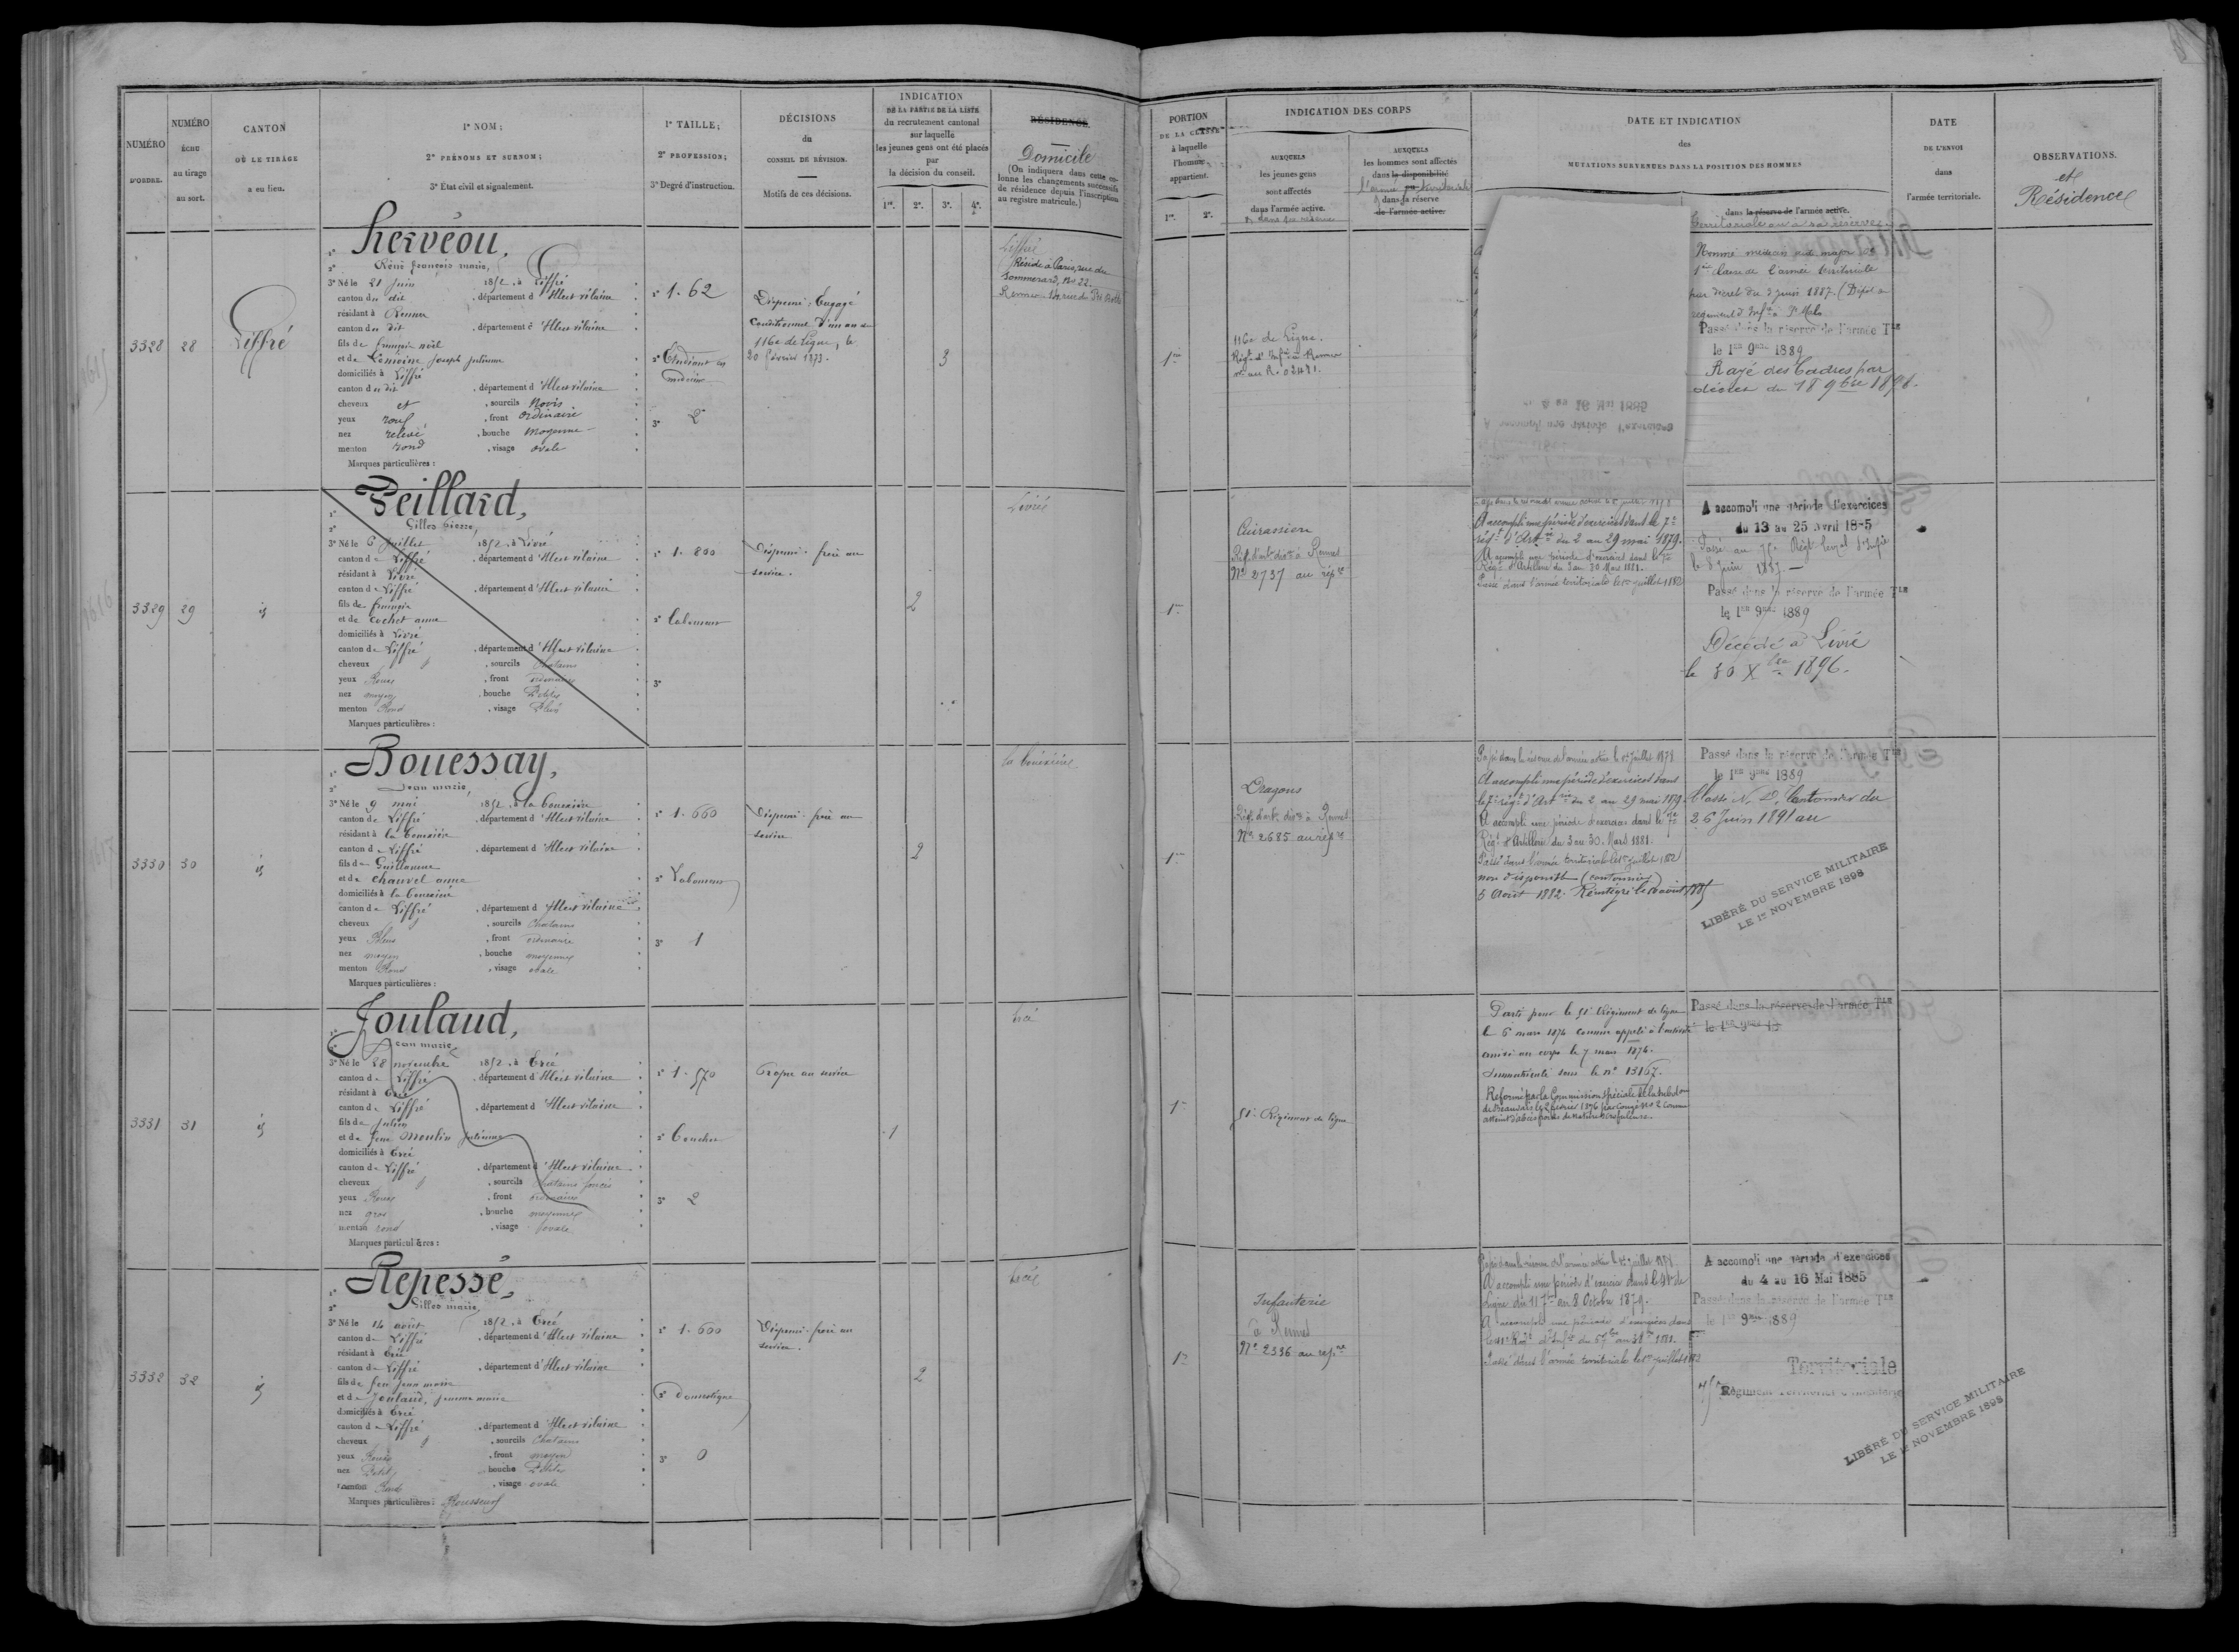 NUMÉRO
D'ORDRE.
NUMÉRO
ÉCHU
au tirage
au sort.
CANTON
OÙ LE TIRAGE
a eu lieu.
1° NOM;
2° PRÉNOMS ET SURNOM;
3° État civil et signalement.
1° TAILLE;
2° PROFESSION;
3° Degré d'instruction.
DÉCISIONS
du
CONSEIL DE RÉVISION.
Motifs de ces décisions.
INDICATION
DE LA PARTIE DE LA LISTE
du recrutement cantonal
sur laquelle
les jeunes gens ont été placés
par
la décision du conseil.
1re. 2e. 3e. 4e.
RÉSIDENCE.
Domicile
(On indiquera dans cette co-
lonne les changements successifs
de résidence depuis l'inscription
au registre matricule.)
3328
28
Liffré
1° Herveou,
2° René françois marie,
3° Né le 21 Juin 1852, à Liffré
canton du dit, département d'Ille et vilaine
résidant à Rennes
canton du dit, département d'Ille et vilaine
fils de françois noël
et de Lemoine joseph julienne
domiciliés à Liffré
canton du dit, département d'Ille et vilaine
cheveux et, sourcils Noirs
yeux roux, front ordinaire
nez relevé, bouche moyenne
menton rond, visage ovale
Marques particulières :
1° 1.62
2° Etudiant en
médecine
3° 2
Dispensé : Engagé
Conditionnel d'un an au
116e de Ligne, le
20 février 1873.
3
Liffré
Réside à Paris, rue du
Sommerard, No 22.
3329
29
id
1° Peillard,
2° Gilles Pierre,
3° Né le 6 Juillet 1852, à Livré
canton de Liffré, département d'Ille et vilaine
résidant à Livré
canton de Liffré, département d'Ille et vilaine
fils de françois
et de Cochet anne
domiciliés à Livré
canton de Liffré, département d'Ille et vilaine
cheveux, sourcils Chatains
yeux Roux, front ordinaire
nez moyen, bouche Petite
menton Rond, visage Plein
Marques particulières :
1° 1.800
2° Laboureur
3°
Dispensé : frère au
service.
2
Livré
3330
30
id
1° Bouessay,
2° Jean marie,
3° Né le 9 mai 1852, à la bouexière
canton de Liffré, département d'Ille et vilaine
résidant à la bouexière
canton de Liffré, département d'Ille et vilaine
fils de Guillaume
et de Chauvel anne
domiciliés à la bouexière
canton de Liffré, département d'Ille et vilaine
cheveux, sourcils Chatains
yeux Bleus, front ordinaire
nez moyen, bouche moyenne
menton Rond, visage ovale
Marques particulières :
1° 1.660
2° Laboureur
3° 1
Dispensé : frère au
service
2
la bouexière
3331
31
id
1° Joulaud,
2° Jean marie
3° Né le 28 novembre 1852, à Ercé
canton de Liffré, département d'Ille et vilaine
résidant à Ercé
canton de Liffré, département d'Ille et vilaine
fils de julien
et de feue Moulin julienne
domiciliés à Ercé
canton de Liffré, département d'Ille et vilaine
cheveux, sourcils chatains foncés
yeux Roux, front ordinaire
nez gros, bouche moyenne
menton rond, visage ovale
Marques particulières :
1° 1.570
3° 2
Propre au service
1
Ercé
3332
32
id
1° Repessé,
2° Gilles marie,
3° Né le 14 août 1852, à Ercé
canton de Liffré, département d'Ille et vilaine
résidant à Ercé
canton de Liffré, département d'Ille et vilaine
fils de feu jean marie
et de Joulaud, jeanne marie
domiciliés à Ercé
canton de Liffré, département d'Ille et vilaine
cheveux, sourcils Chatains
yeux Roux, front moyen
nez Petit, bouche Petite
menton Rond, visage ovale
Marques particulières : Rousseurs
1° 1.600
2° Domestique
3° 0
Dispensé : frère au
service.
2
Ercé
PORTION
DE LA CLASSE
à laquelle
l'homme
appartient.
1re. 2e.
INDICATION DES CORPS
AUXQUELS
les jeunes gens
sont affectés
dans l'armée active.
& dans sa réserve
AUXQUELS
les hommes sont affectés
dans la disponibilité
l'armée ou territoriale
& dans sa réserve
de l'armée active.
DATE ET INDICATION
des
MUTATIONS SURVENUES DANS LA POSITION DES HOMMES
dans la réserve de l'armée active.
territoriale ou sa réserve
DATE
DE L'ENVOI
dans
l'armée territoriale.
OBSERVATIONS.
et
Résidence
1re
116e de Ligne.
Régt d'Infie à Rennes
Nommé médecin aide major de
1re Classe de l'armée territoriale
par décret du 3 juin 1887. (Dépôt du
régiment d'Infie St Malo
Passé dans la réserve de l'armée Tle
le 1er 9bre 1889
Rayé des Cadres par
décret du 18 9bre 1898.
A accompli une période d'exercices
du 4 au 16 Mai 1885
1re
Cuirassiers
Régt d'art. div. à Rennes
No 2737 au répre
Passé dans la réserve de l'armée active le 1er juillet 1878
A accompli une période d'exercices dans le 7e
régt d'Artie du 2 au 29 mai 1879.
A accompli une période d'exercices dans le 7e
Régt d'Artillerie du 3 au 30 Mars 1881.
Passé dans l'armée territoriale le 1er juillet 1882
A accompli une période d'exercices
du 13 au 25 Avril 1885
Passé au 75e Régt territ. d'Infie
le 8 Juin 1885.
Passé dans la réserve de l'armée Tle
le 1er 9bre 1889
Décédé à Livré
le 30 Xbre 1896.
1re
Dragons
Régt d'art. div. à Rennes
No 2685 au répre
Passé dans la réserve de l'armée active le 1er juillet 1878
A accompli une période d'exercices dans
le 7e régt d'Artie du 2 au 29 mai 1879.
A accompli une période d'exercices dans le 7e
Régt d'Artillerie du 3 au 30 Mars 1881.
Passé dans l'armée territoriale le 1er juillet 1882
non disponible (cantonnier)
5 Août 1882. Réintégré le 10 août 1885
Passé dans la réserve de l'armée Tle
le 1er 9bre 1889
Classé N. D. Cantonnier du
26 Juin 1891 au
LIBÉRÉ DU SERVICE MILITAIRE
LE 1er NOVEMBRE 1898
1re
51e Régiment de ligne
Parti pour le 51e Régiment de ligne
le 6 mars 1874 comme appelé à l'activité
arrivé au corps le 7 mars 1874.
Immatriculé sous le no 13167.
Réformé par la Commission spéciale de la subdon
de Beauvais le 2 février 1876 par Congé No 2 Comme
atteint d'abcès froids de nature scrofuleuse.
Passé dans la réserve de l'armée Tle
1re
Infanterie
à Rennes
No 2336 au répre
Passé dans la réserve de l'armée active le 1er juillet 1878
A accompli une période d'exercice dans le 41e de
Ligne du 11 7bre au 8 Octobre 1879.
A accompli une période d'exercices dans
Passé dans l'armée territoriale le 1er juillet 1882
A accompli une période d'exercices
du 4 au 16 Mai 1885
Passé dans la réserve de l'armée Tle
le 1er 9bre 1889
Territoriale
75e Régiment Territorial d'Infanterie
LIBÉRÉ DU SERVICE MILITAIRE
LE 1er NOVEMBRE 1898